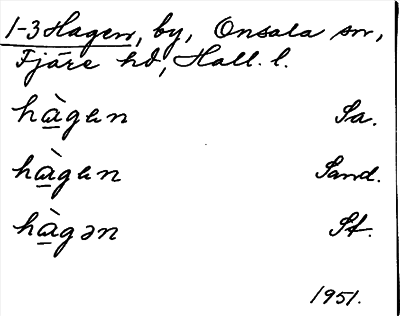 1-3 Hagen, by, Onsala sn,
Fjäre hd, Hall. l.
hàgen Sa.
hàgen Sand.
hàgən St.
1951.